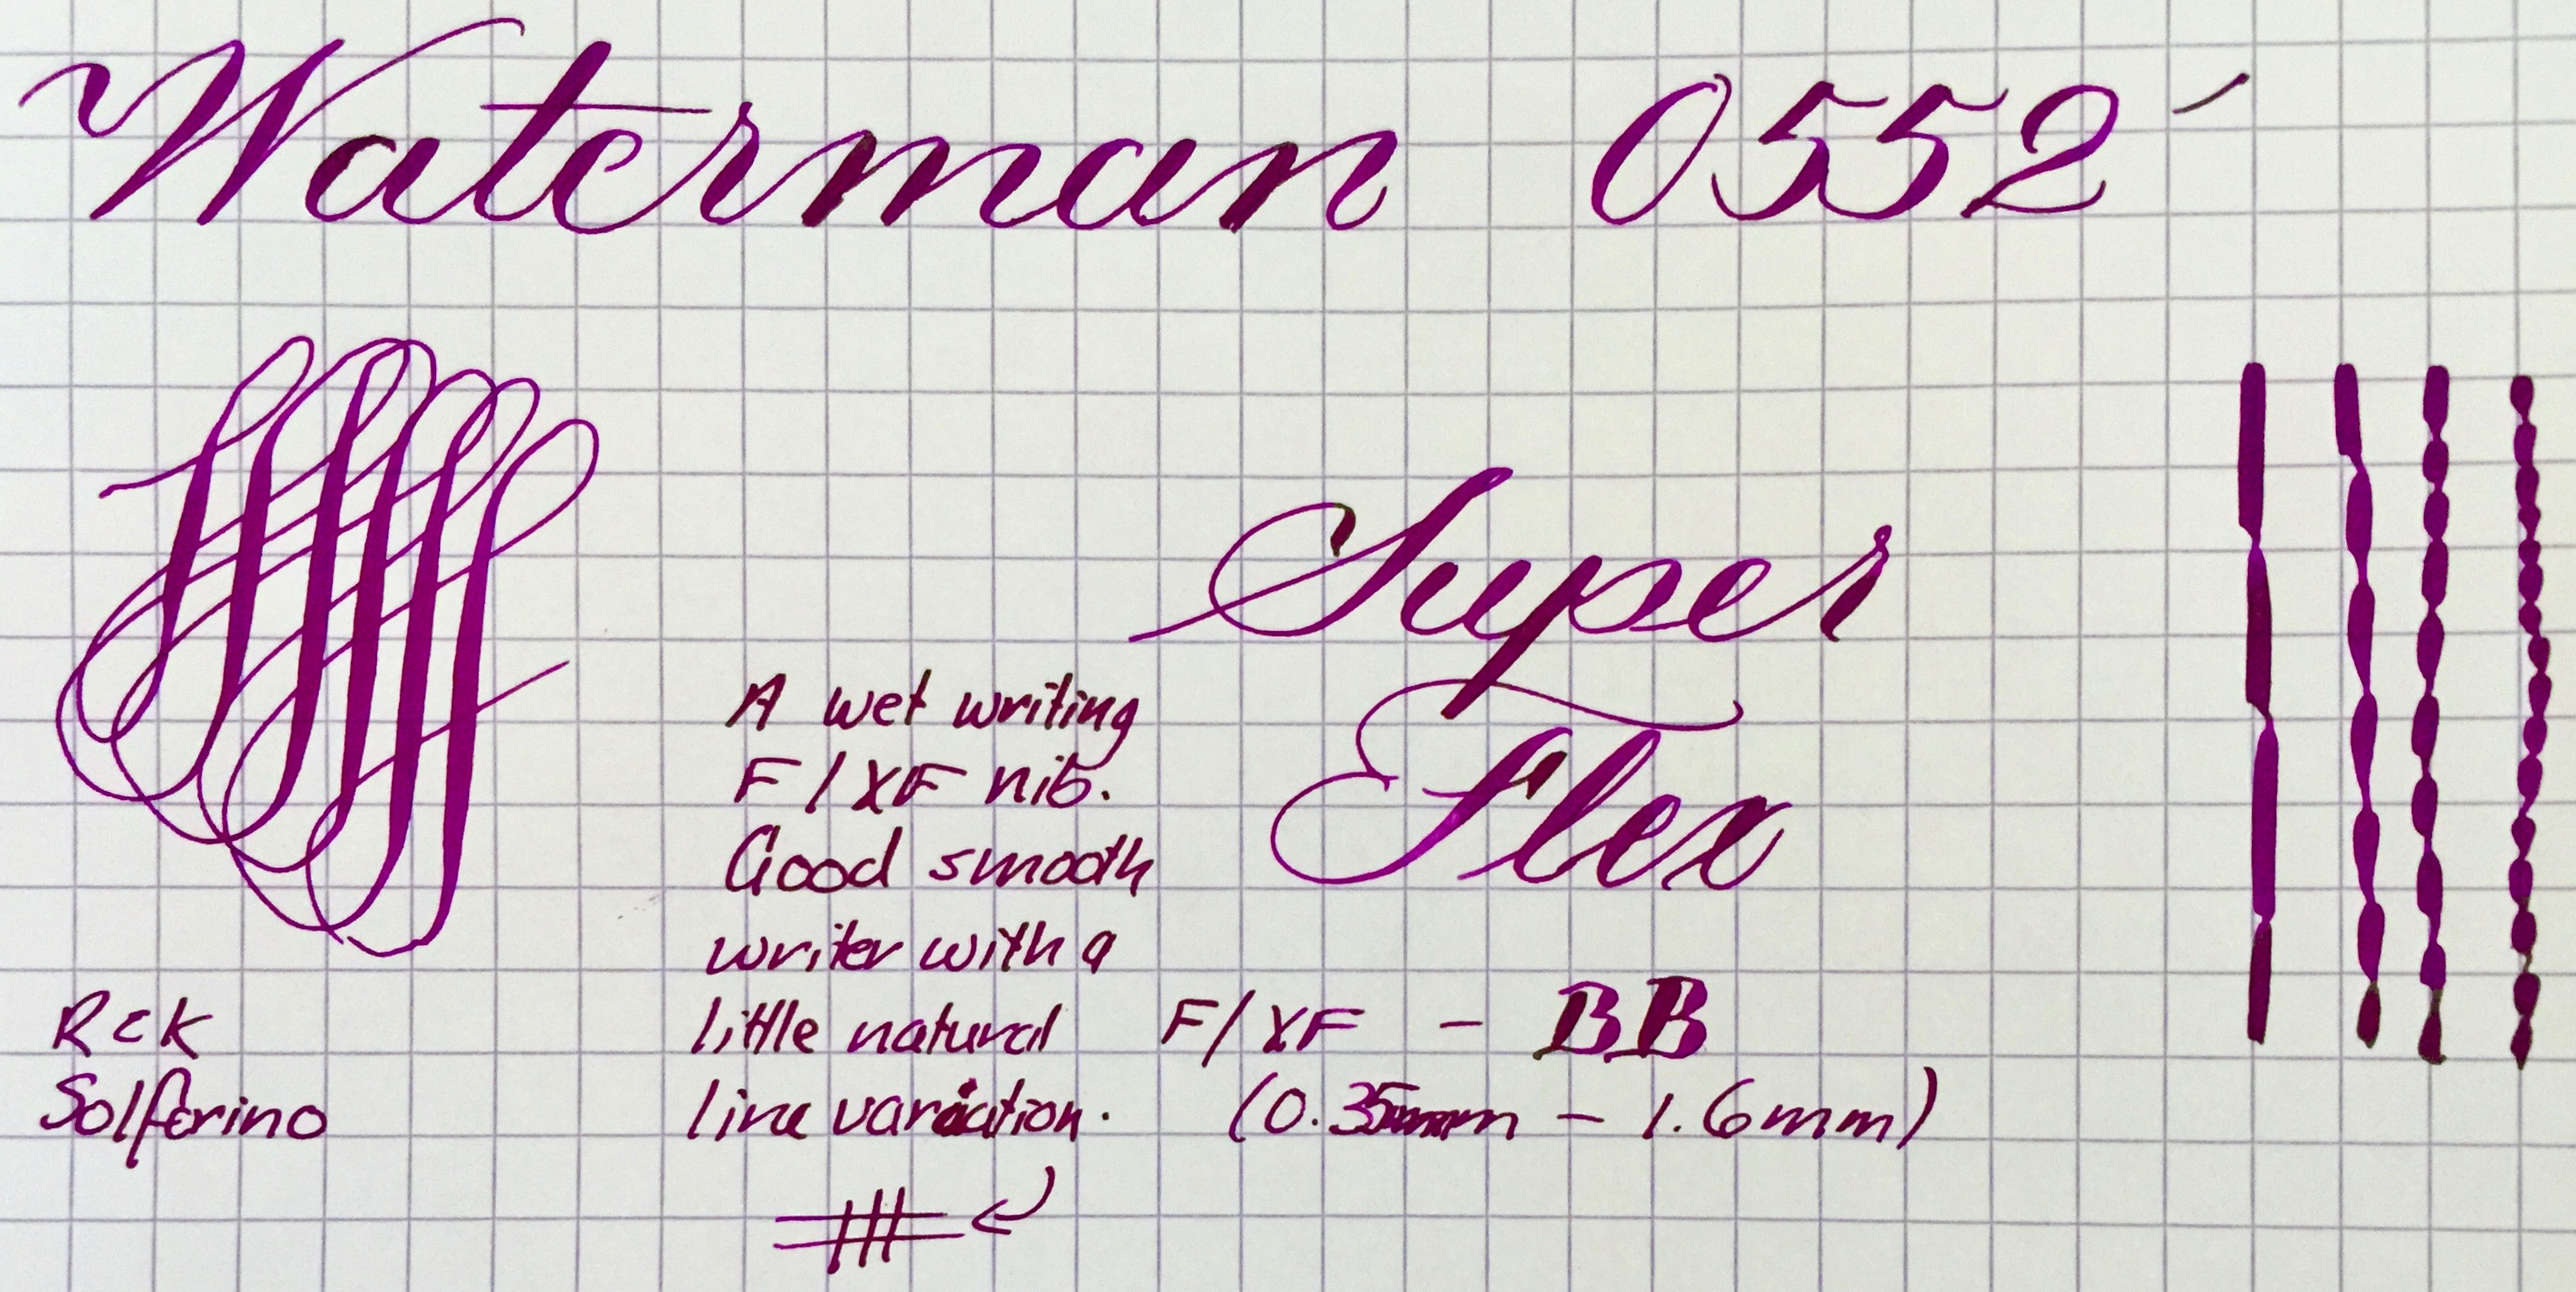 Waterman 0552
Super
Flex
A wet writing
F/XF nib.
Good smooth
writer with a
little natural
line variation.
F/XF - BB
(0.35mm - 1.6mm)
R&K
Solferino